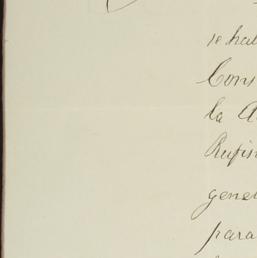 se hal
Cons
la A
Rufin
gene
para